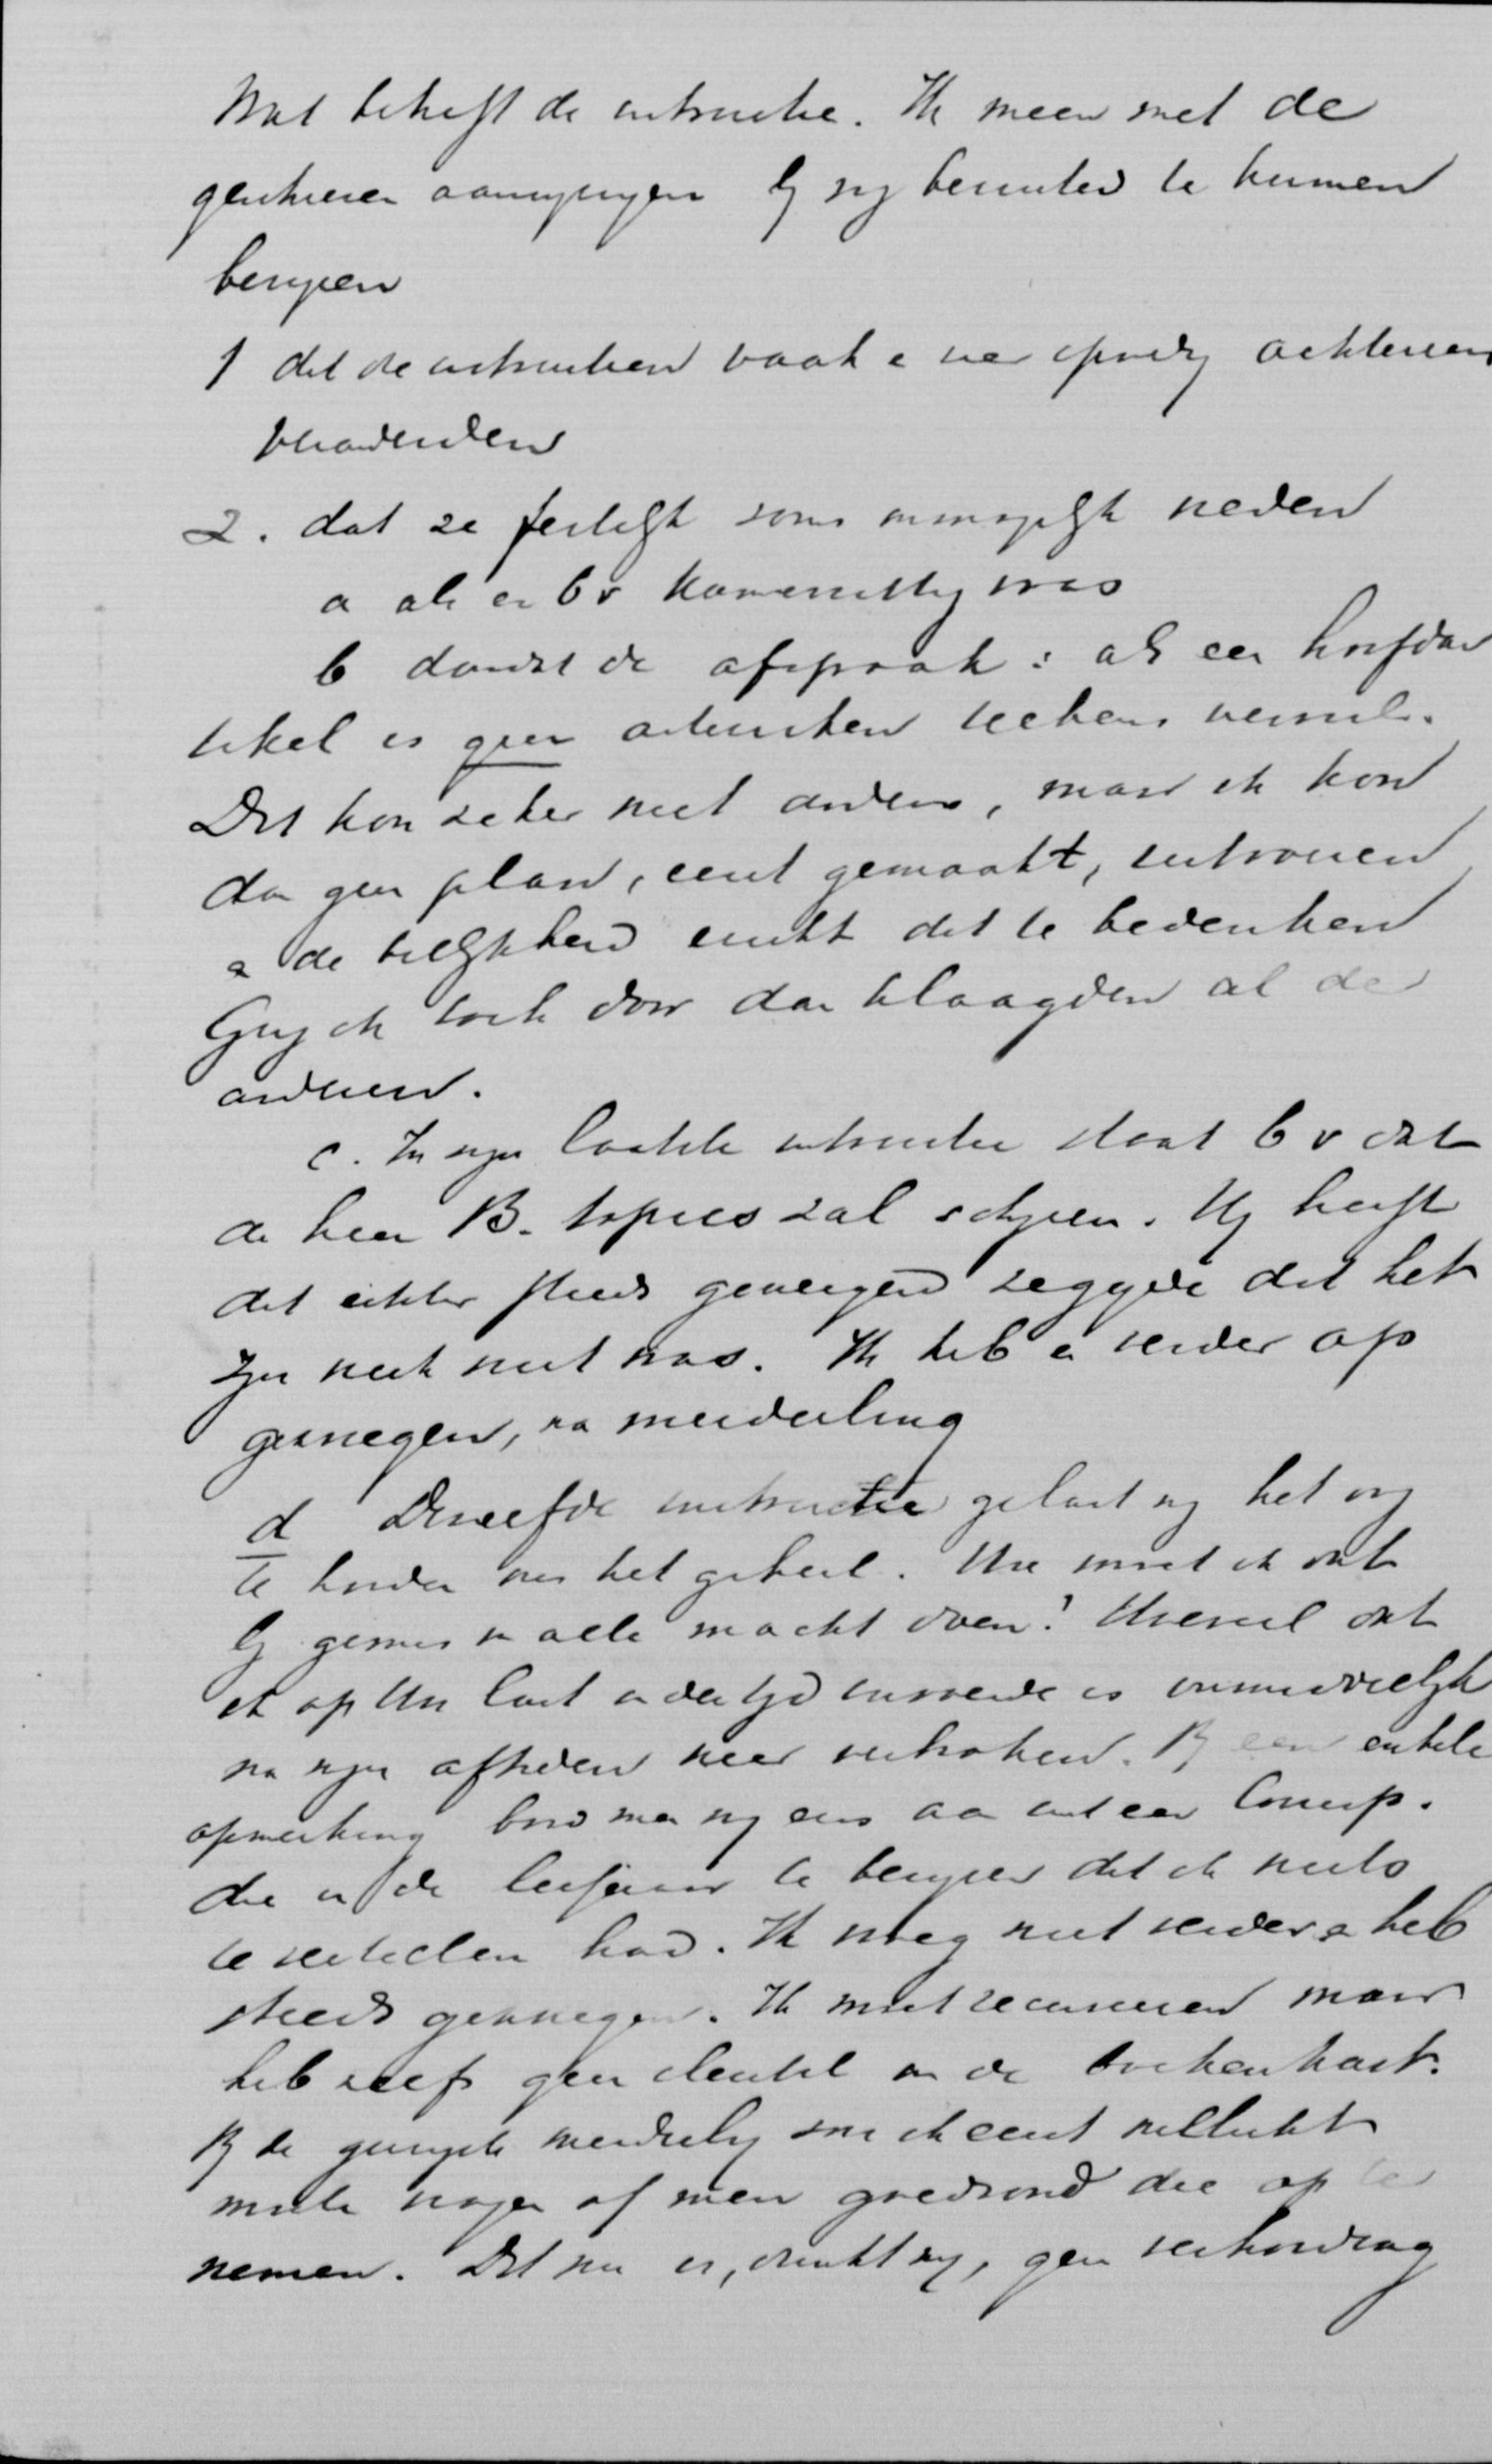 Wat betreft de instructie. Ik meen met de
geschreven aanwijzingen bij mij benevens te kunnen
bewijzen
1 dat de instructies vaak e zeer spoedig achtereen
veranderden
2. dat ze feitelijk soms onmogelijk werden
a als er bv Kamerzitting was
b doordat de afspraak: als een hoofdar
tikel is geen artikelen telkens verviel.
Dat kon zeker niet anders, maar ik kon
dan geen plan, eerst gemaakt, uitvoeren
e de billijkheid eischt dit te bedenken
Ging ik toch door dan klaagden al de
anderen.
c. In mijn laatste instructie staat bv dat
de heer B. topics zal schrijven. Hij heeft
dit echter steeds geweigerd zeggende dat het
zijn werk niet was. Ik heb er verder op
gezwegen, na mededeeling
d Diezelfde instructie gelast mij het oog
te houden over het geheel. Hoe moet ik dat
bij gemis aan alle macht doen? Hoewel dat
ik op Uw last indertijd invoerde is onmiddellijk
na mijn aftreden weer verbroken. Bij een enkele
opmerking bood men mij eens aan uit een Concept
die in de leesjaren te bewijzen dat ik niets
te vertellen had. Ik zweeg niet verder e heb
steeds gezwegen. Ik moet recenseeren maar
heb zelfs geen sleutel van de boekenkast.
Bij de geringste mededeeling zou ik eerst wellicht
moeten vragen of men goedvond die op te
nemen. Dat nu is, dunkt mij, geen verhouding